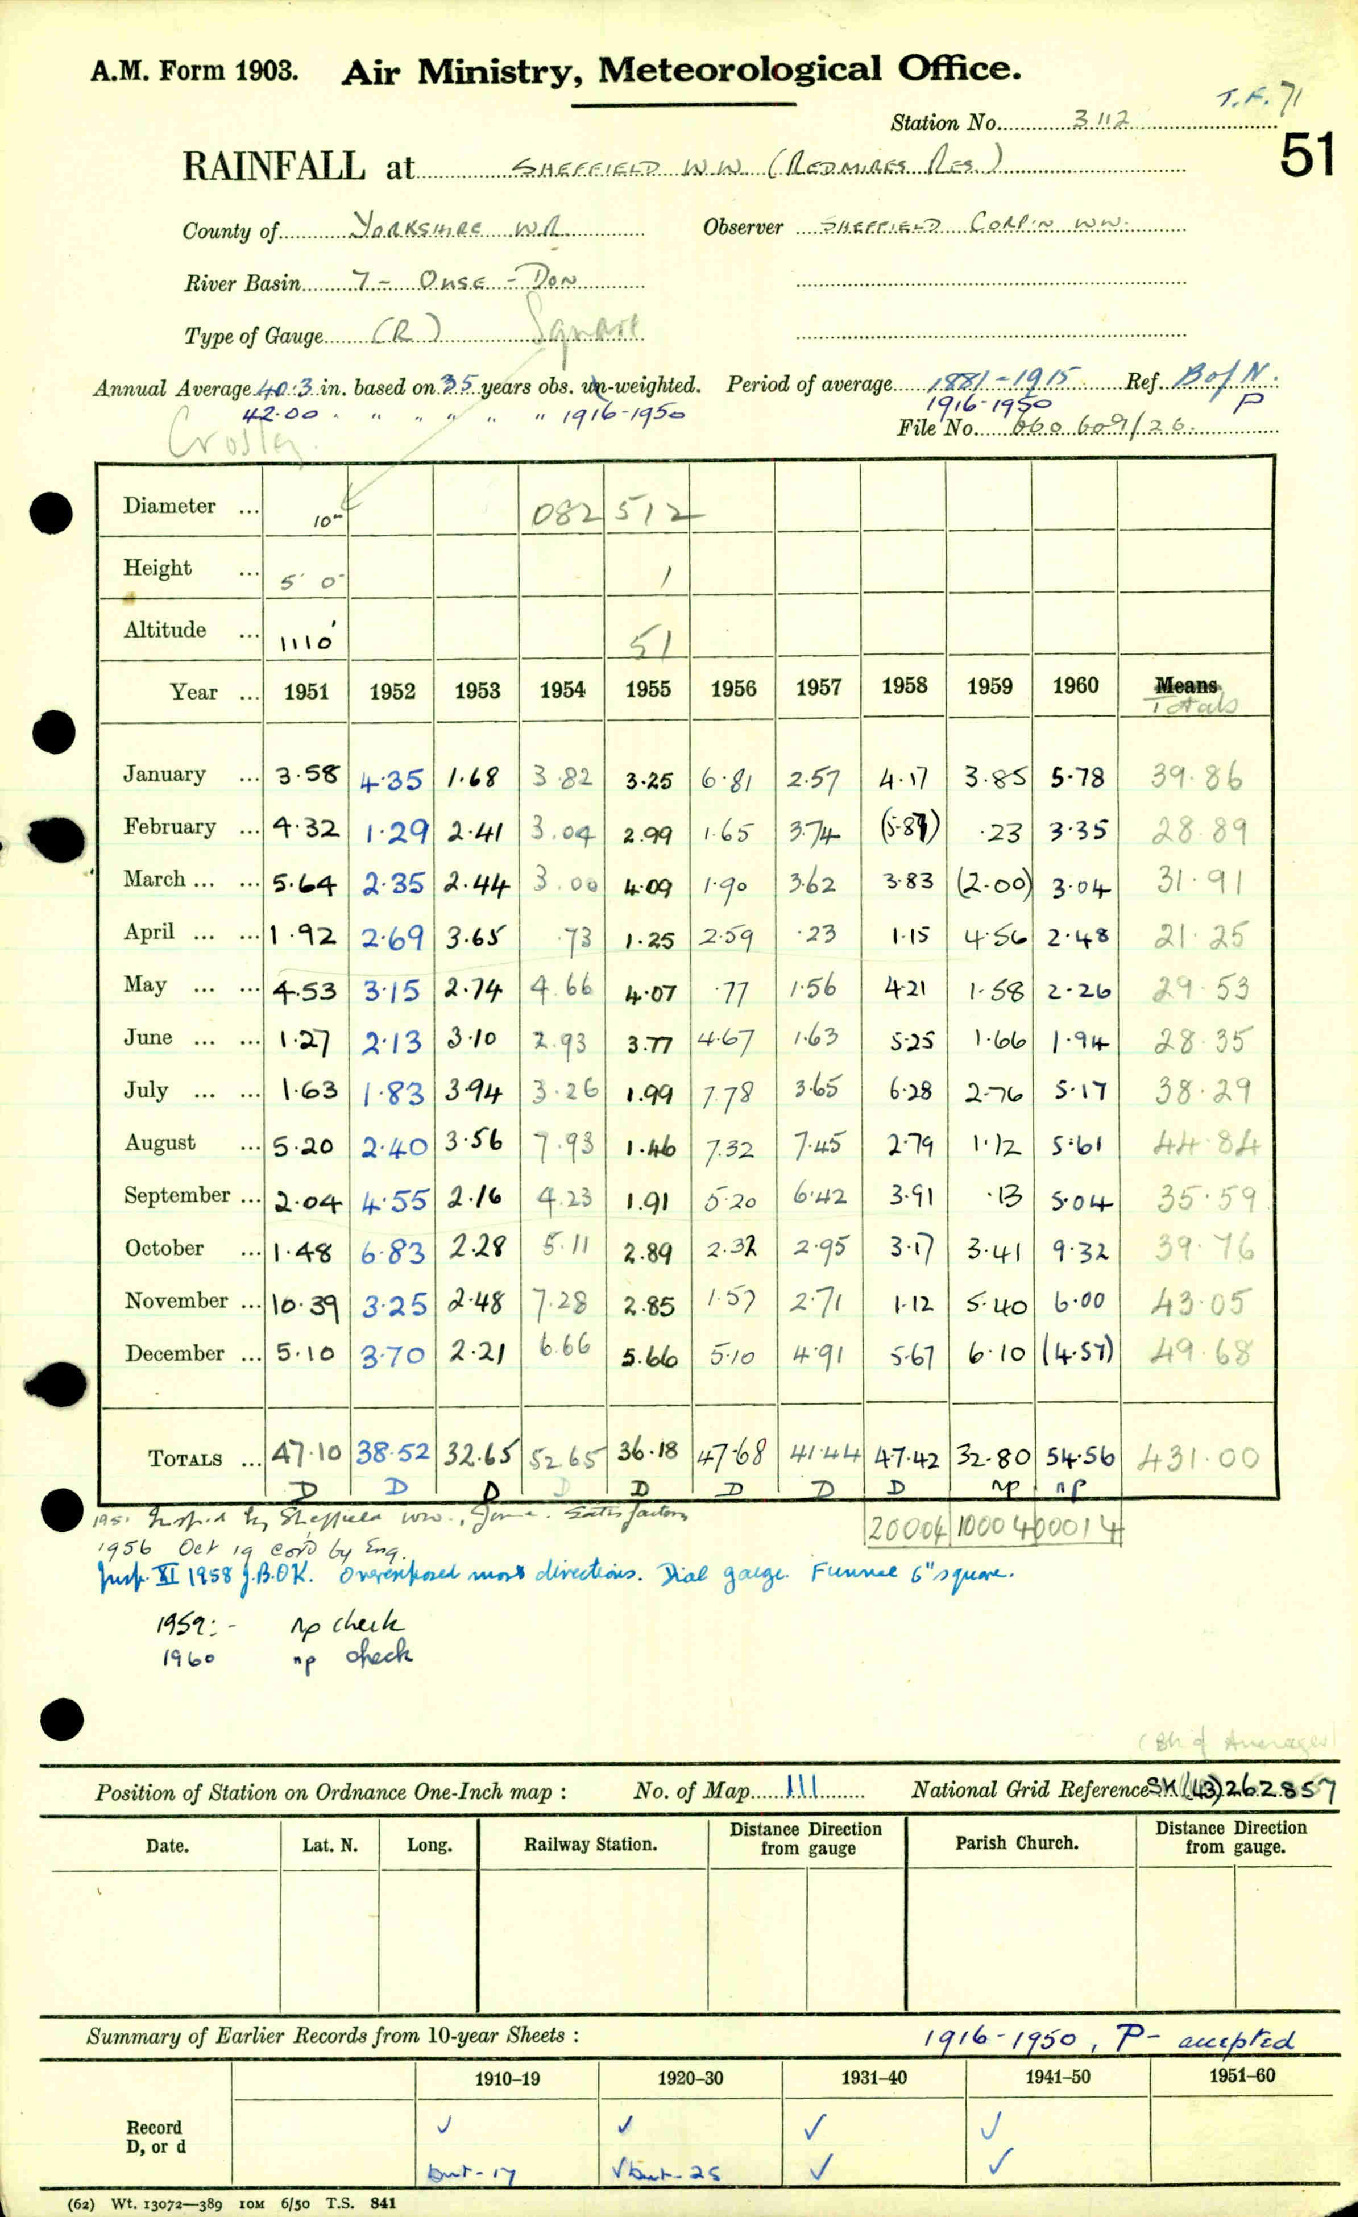 A.M. Form 1903. Air Ministry, Meteorological Office.
T.F. 71
Station No. 3112
51
RAINFALL at SHEFFIELD W W (REDMIRES RES.)
County of YORKSHIRE W R Observer SHEFFIELD CORP'N WW.
River Basin 7 - OUSE - DON
Type of Gauge (R) Square
Annual Average 40.3 in. based on 35 years obs. un-weighted. Period of average 1881-1915 Ref. B of N.
42.00 " " " " " " 1916-1950 1916-1950 P
File No. 060609/26
Crosley.
Diameter ... 10" 082 512
Height ... 5' 0" 1
Altitude ... 1110' 51
Year ... 1951 1952 1953 1954 1955 1956 1957 1958 1959 1960 Means
Totals
January ... 3.58 4.35 1.68 3.82 3.25 6.81 2.57 4.17 3.85 5.78 39.86
February ... 4.32 1.29 2.41 3.04 2.99 1.65 3.74 (5.87) .23 3.35 28.89
March ... ... 5.64 2.35 2.44 3.00 4.09 1.90 3.62 3.83 (2.00) 3.04 31.91
April ... ... 1.92 2.69 3.65 .73 1.25 2.59 .23 1.15 4.56 2.48 21.25
May ... ... 4.53 3.15 2.74 4.66 4.07 .77 1.56 4.21 1.58 2.26 29.53
June ... ... 1.27 2.13 3.10 2.93 3.77 4.67 1.63 5.25 1.66 1.94 28.35
July ... ... 1.63 1.83 3.94 3.26 1.99 7.78 3.65 6.28 2.76 5.17 38.29
August ... 5.20 2.40 3.56 7.93 1.46 7.32 7.45 2.79 1.12 5.61 44.84
September ... 2.04 4.55 2.16 4.23 1.91 5.20 6.42 3.91 .13 5.04 35.59
October ... 1.48 6.83 2.28 5.11 2.89 2.32 2.95 3.17 3.41 9.32 39.76
November ... 10.39 3.25 2.48 7.28 2.85 1.57 2.71 1.12 5.40 6.00 43.05
December ... 5.10 3.70 2.21 6.66 5.66 5.10 4.91 5.67 6.10 (4.57) 49.68
TOTALS ... 47.10 38.52 32.65 52.65 36.18 47.68 41.44 47.42 32.80 54.56 431.00
D D D D D D D D np np
1951 Insp'd by Sheffield WW., June. Satisfactory
20004 10004 00014
1956 Oct 19 cor'd by Eng.
Insp. XI 1958 J.B.OK. Overexposed most directions. Dial gauge. Funnel 6" square.
1959:- np check
1960 np check
(Bk of Averages)
Position of Station on Ordnance One-Inch map : No. of Map 111 National Grid Reference SK(43)262857
Date. Lat. N. Long. Railway Station. Distance Direction from gauge Parish Church. Distance Direction from gauge.
Summary of Earlier Records from 10-year Sheets : 1916-1950, P- accepted
1910–19 1920–30 1931–40 1941–50 1951–60
Record ✓ ✓ ✓ ✓
D, or d but - 17 ✓ but - 25 ✓ ✓
(62) Wt. 13072—389 10M 6/50 T.S. 841